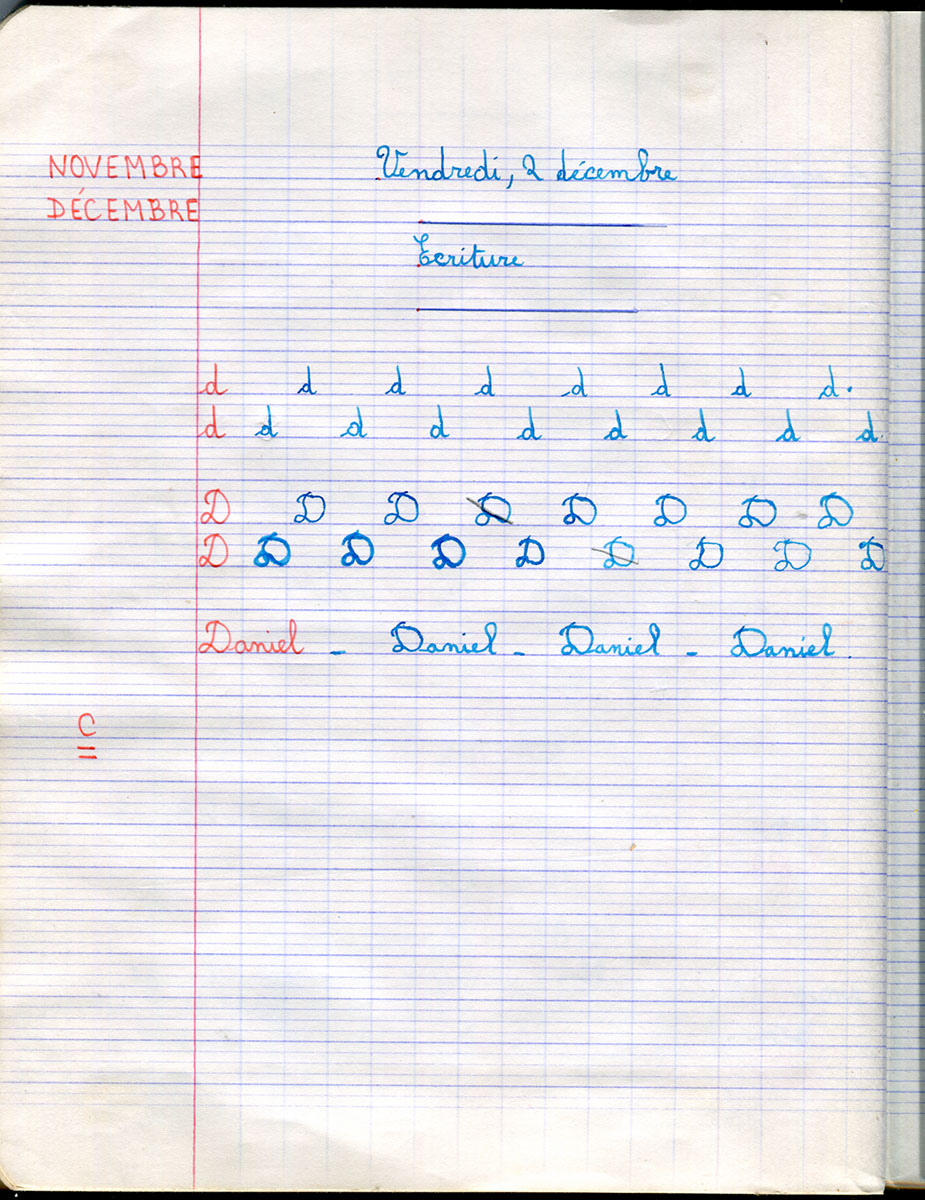 NOVEMBRE
DÉCEMBRE
Vendredi, 2 décembre
Ecriture
d d d d d d d d.
d d d d d d d d d.
D D D D D D D D
D D D D D D D D D
Daniel - Daniel - Daniel - Daniel.
C